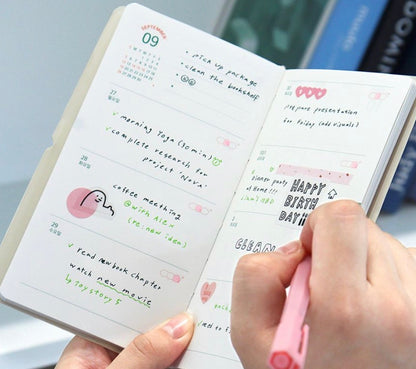 SEPTEMBER
09
S M T W T F S
• pick up package
• clean the bookshelf
27
월요일
✓ morning Yoga (30 min)
✓ complete research for
project 'Nova'
28
화요일
coffee meething
@with Alex
(re: new idea)
29
수요일
✓ read new book chapter
watch new movie
by Toy story 5
prepare presentation
for Friday (add visuals)
dinner party
at Home!!!
HAPPY
BIRTH
DAY!!
CLEAN